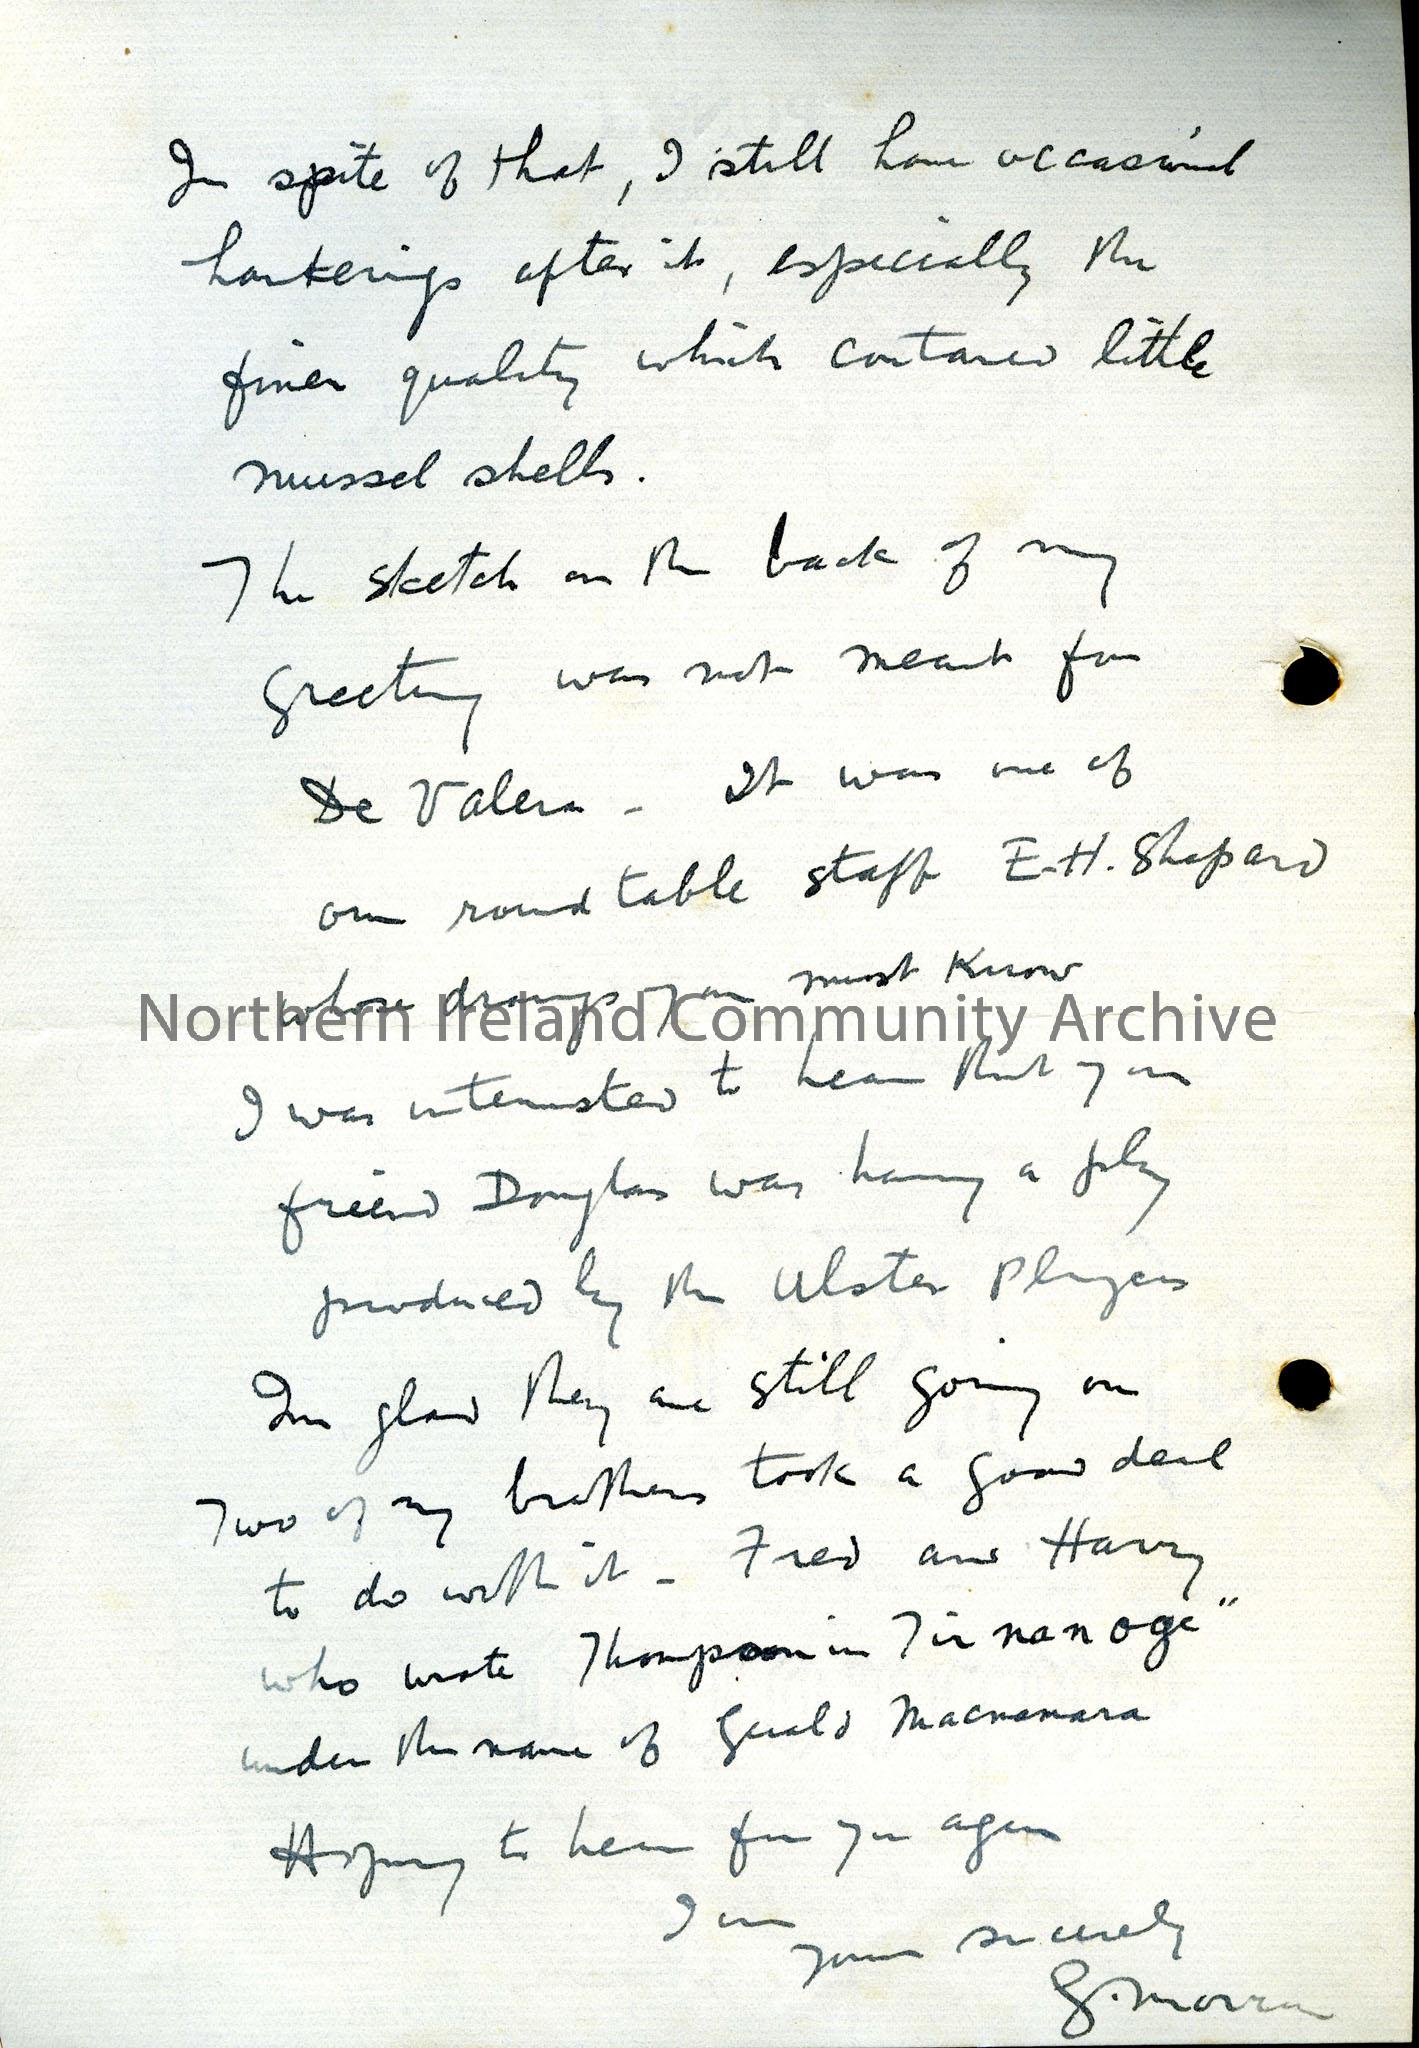 In spite of that, I still have occasional
hankerings after it, especially the
finer quality which contained little
mussel shells.
The sketch on the back of my
Greeting was not meant for
De Valera - It was one of
our round table staff E.H. Shepard
whose drawings you must know
Northern Ireland Community Archive
I was interested to hear that your
friend Douglas was having a play
produced by the Ulster Players
I'm glad they are still going on
Two of my brothers took a good deal
to do with it - Fred and Harry
who wrote Thompson in Tir nan oge"
under the name of Gerald Macnamara
Hoping to hear from you again
I am
yours sincerely
G. Morrow